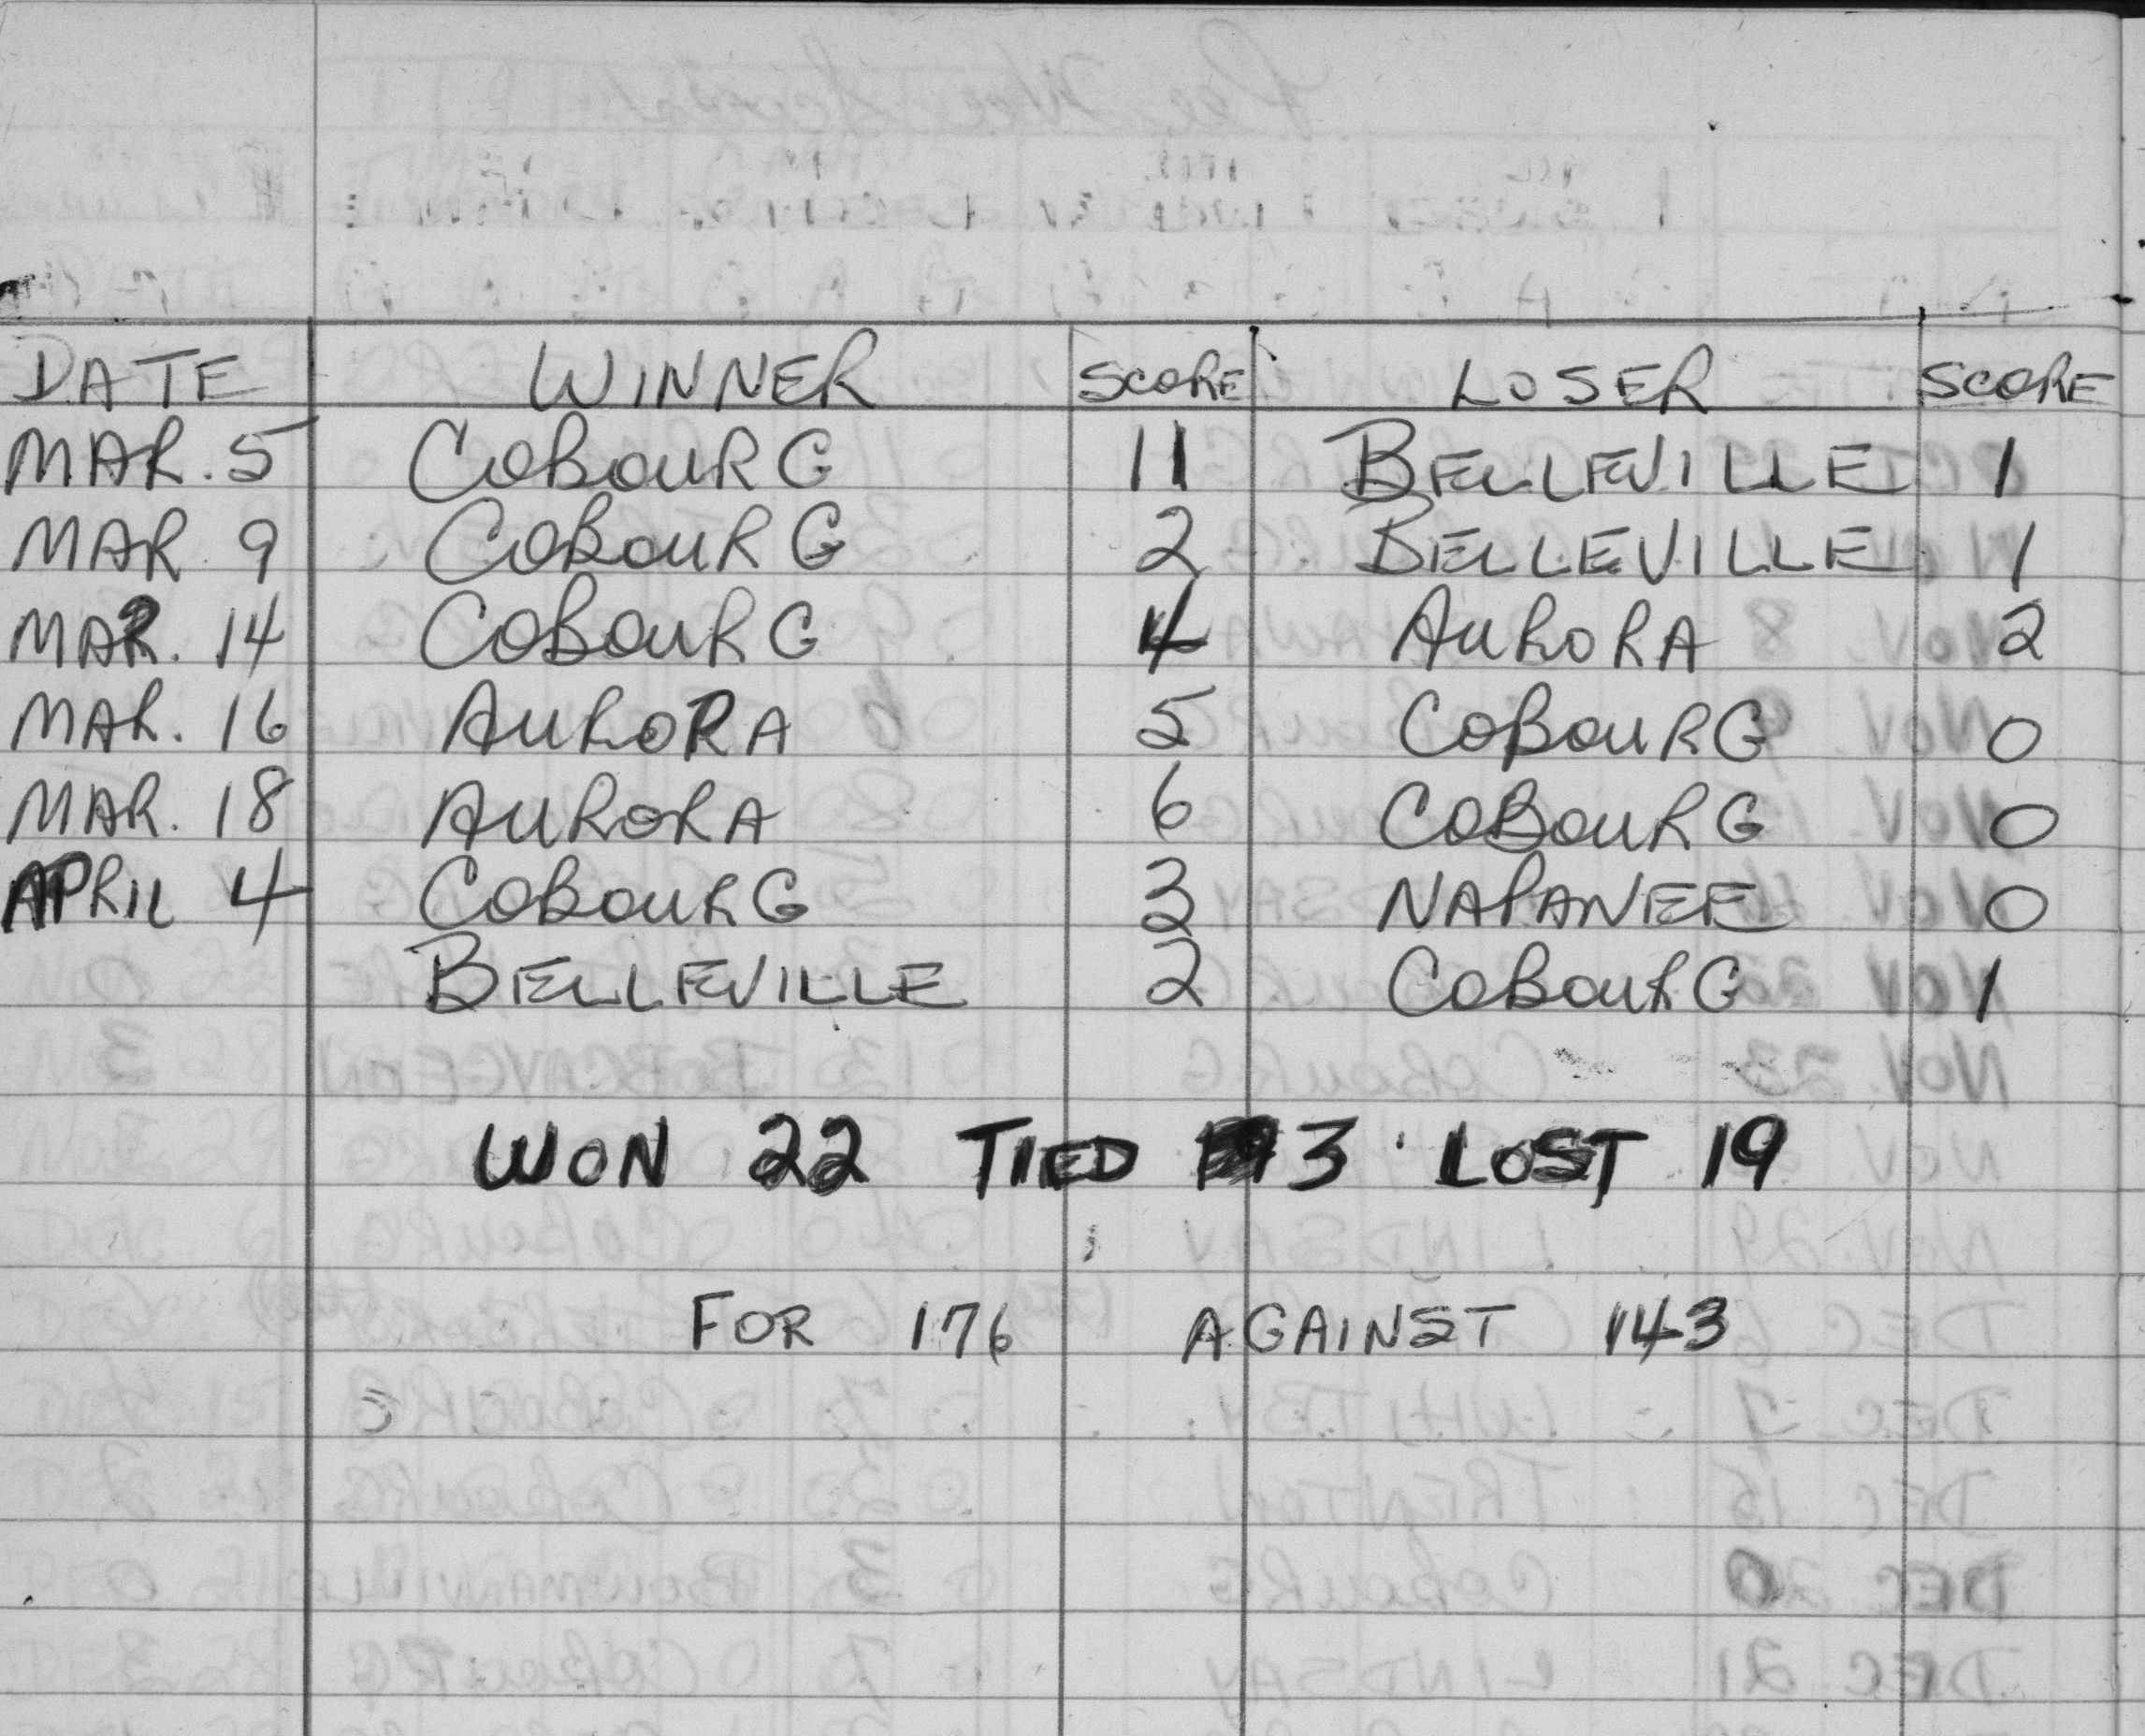 DATE WINNER SCORE LOSER SCORE
MAR. 5 COBOURG 11 BELLEVILLE 1
MAR. 9 COBOURG 2 BELLEVILLE 1
MAR. 14 COBOURG 4 AURORA 2
MAR. 16 AURORA 5 COBOURG 0
MAR. 18 AURORA 6 COBOURG 0
APRIL 4 COBOURG 3 NAPANEE 0
BELLEVILLE 2 COBOURG 1
WON 22 TIED 3 LOST 19
FOR 176 AGAINST 143